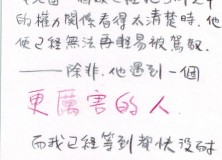 的權力關係看得太清楚時,他
便已經無法再輕易被駕馭
——除非,他遇到一個
更厲害的人.
而我已經等到都快沒耐